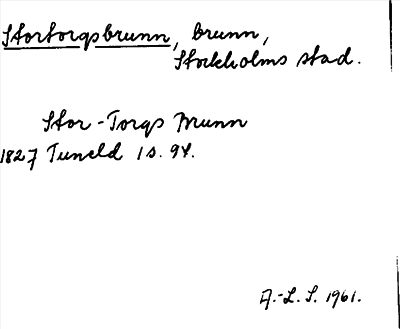 Stortorgsbrunn, brunn,
Stockholms stad.
Stor-Torgs Brunn
1827 Tuneld 1 s. 94.
A.-L. S. 1961.